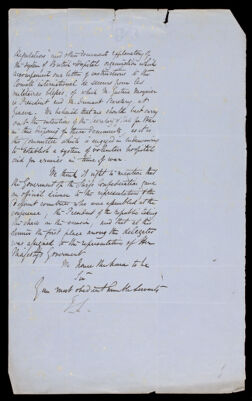 Regulations and other documents explanatory of
the system of British Hospital organization which
accompanied our letter of instructions to the
Comité international de secours pour les
militaires blessés of which M. Gustave Moynier
is President and M. Dunant Secretary at
Geneva. We believed that we should best carry
out the intentions of the Secretary of State for War
in this disposal for these documents, as it is
this Committee which is engaged in endeavouring
to establish a system of volunteer hospital
aid for armies in time of war.
We think it right to mention that
the Government of the Swiss Confederation gave
an official dinner to the representatives of the
different countries who were assembled at the
conference, the President of the republic taking
the chair on the occasion, and that at this
dinner the first place among the delegates
was assigned to the representatives of Her
Majesty's Government.
We have the honor to be
Sir
Your most obedient humble Servants